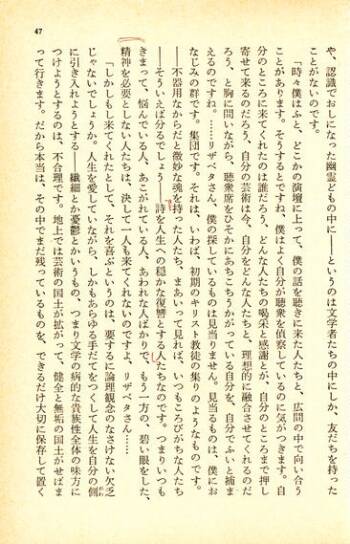 47
や、認識でおしになった幽霊どもの中に――というのは文学者たちの中にしか、友だちを持った
ことがないのです。
「時々僕はふと、どこかの演壇に上って、僕の話を聴きに来た人たちと、広間の中で向い合う
ことがあります。そうするとですね、僕はよく自分が聴衆を偵察しているのに気がつきます。自
分のところに来てくれたのは誰だろう、どんな人たちの喝采と感謝とが、自分のところまで押し
寄せて来るのだろう、自分の芸術は今、自分をどんな人たちと、理想的に融合させてくれるのだ
ろう、と胸に問いながら、聴衆席をひそかにあちこちうかがっている自分を、自分でふいと捕ま
えるのですね。……リザベタさん、僕の探しているものは見当りません。見当るものは、僕にお
なじみの群です。集団です。それは、いわば、初期のキリスト教徒の集りのようなものです。
――不器用なからだと微妙な魂を持った人たち、まあいって見れば、いつもころびがちな人たち
――そういえば分るでしょう――詩を人生への穏かな復讐とする人たちなのです。つまりいつも
きまって、悩んでいる人、あこがれている人、あわれな人ばかりで、もう一方の、碧い眼をした、
精神を必要としない人たちは、決して一人も来てくれないのですよ、リザベタさん……
「しかしもし来てくれたとして、それを喜ぶというのは、要するに論理観念のなさけない欠乏
じゃないでしょうか。人生を愛していながら、しかもあらゆる手だてをつくして人生を自分の側
に引き入れようとする――繊細とか憂鬱とかいうもの、つまり文学の病的な貴族性全体の味方に
つけようとするのは、不合理です。地上では芸術の国土が拡がって、健全と無垢の国土がせばま
って行きます。だから本当は、その中でまだ残っているものを、できるだけ大切に保存して置く